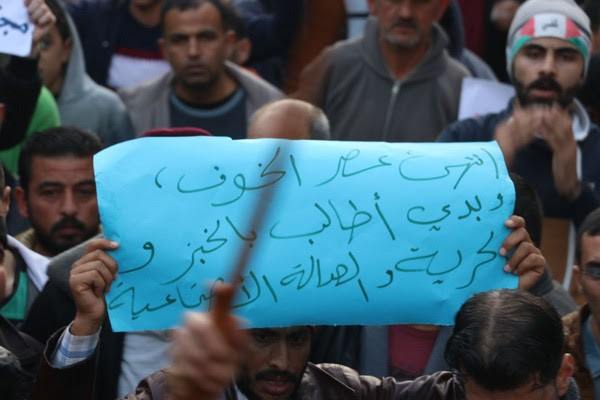 انتهى عصر الخوف ،
وبدي أطالب بالخبز و
الحرية و العدالة الاجتماعية